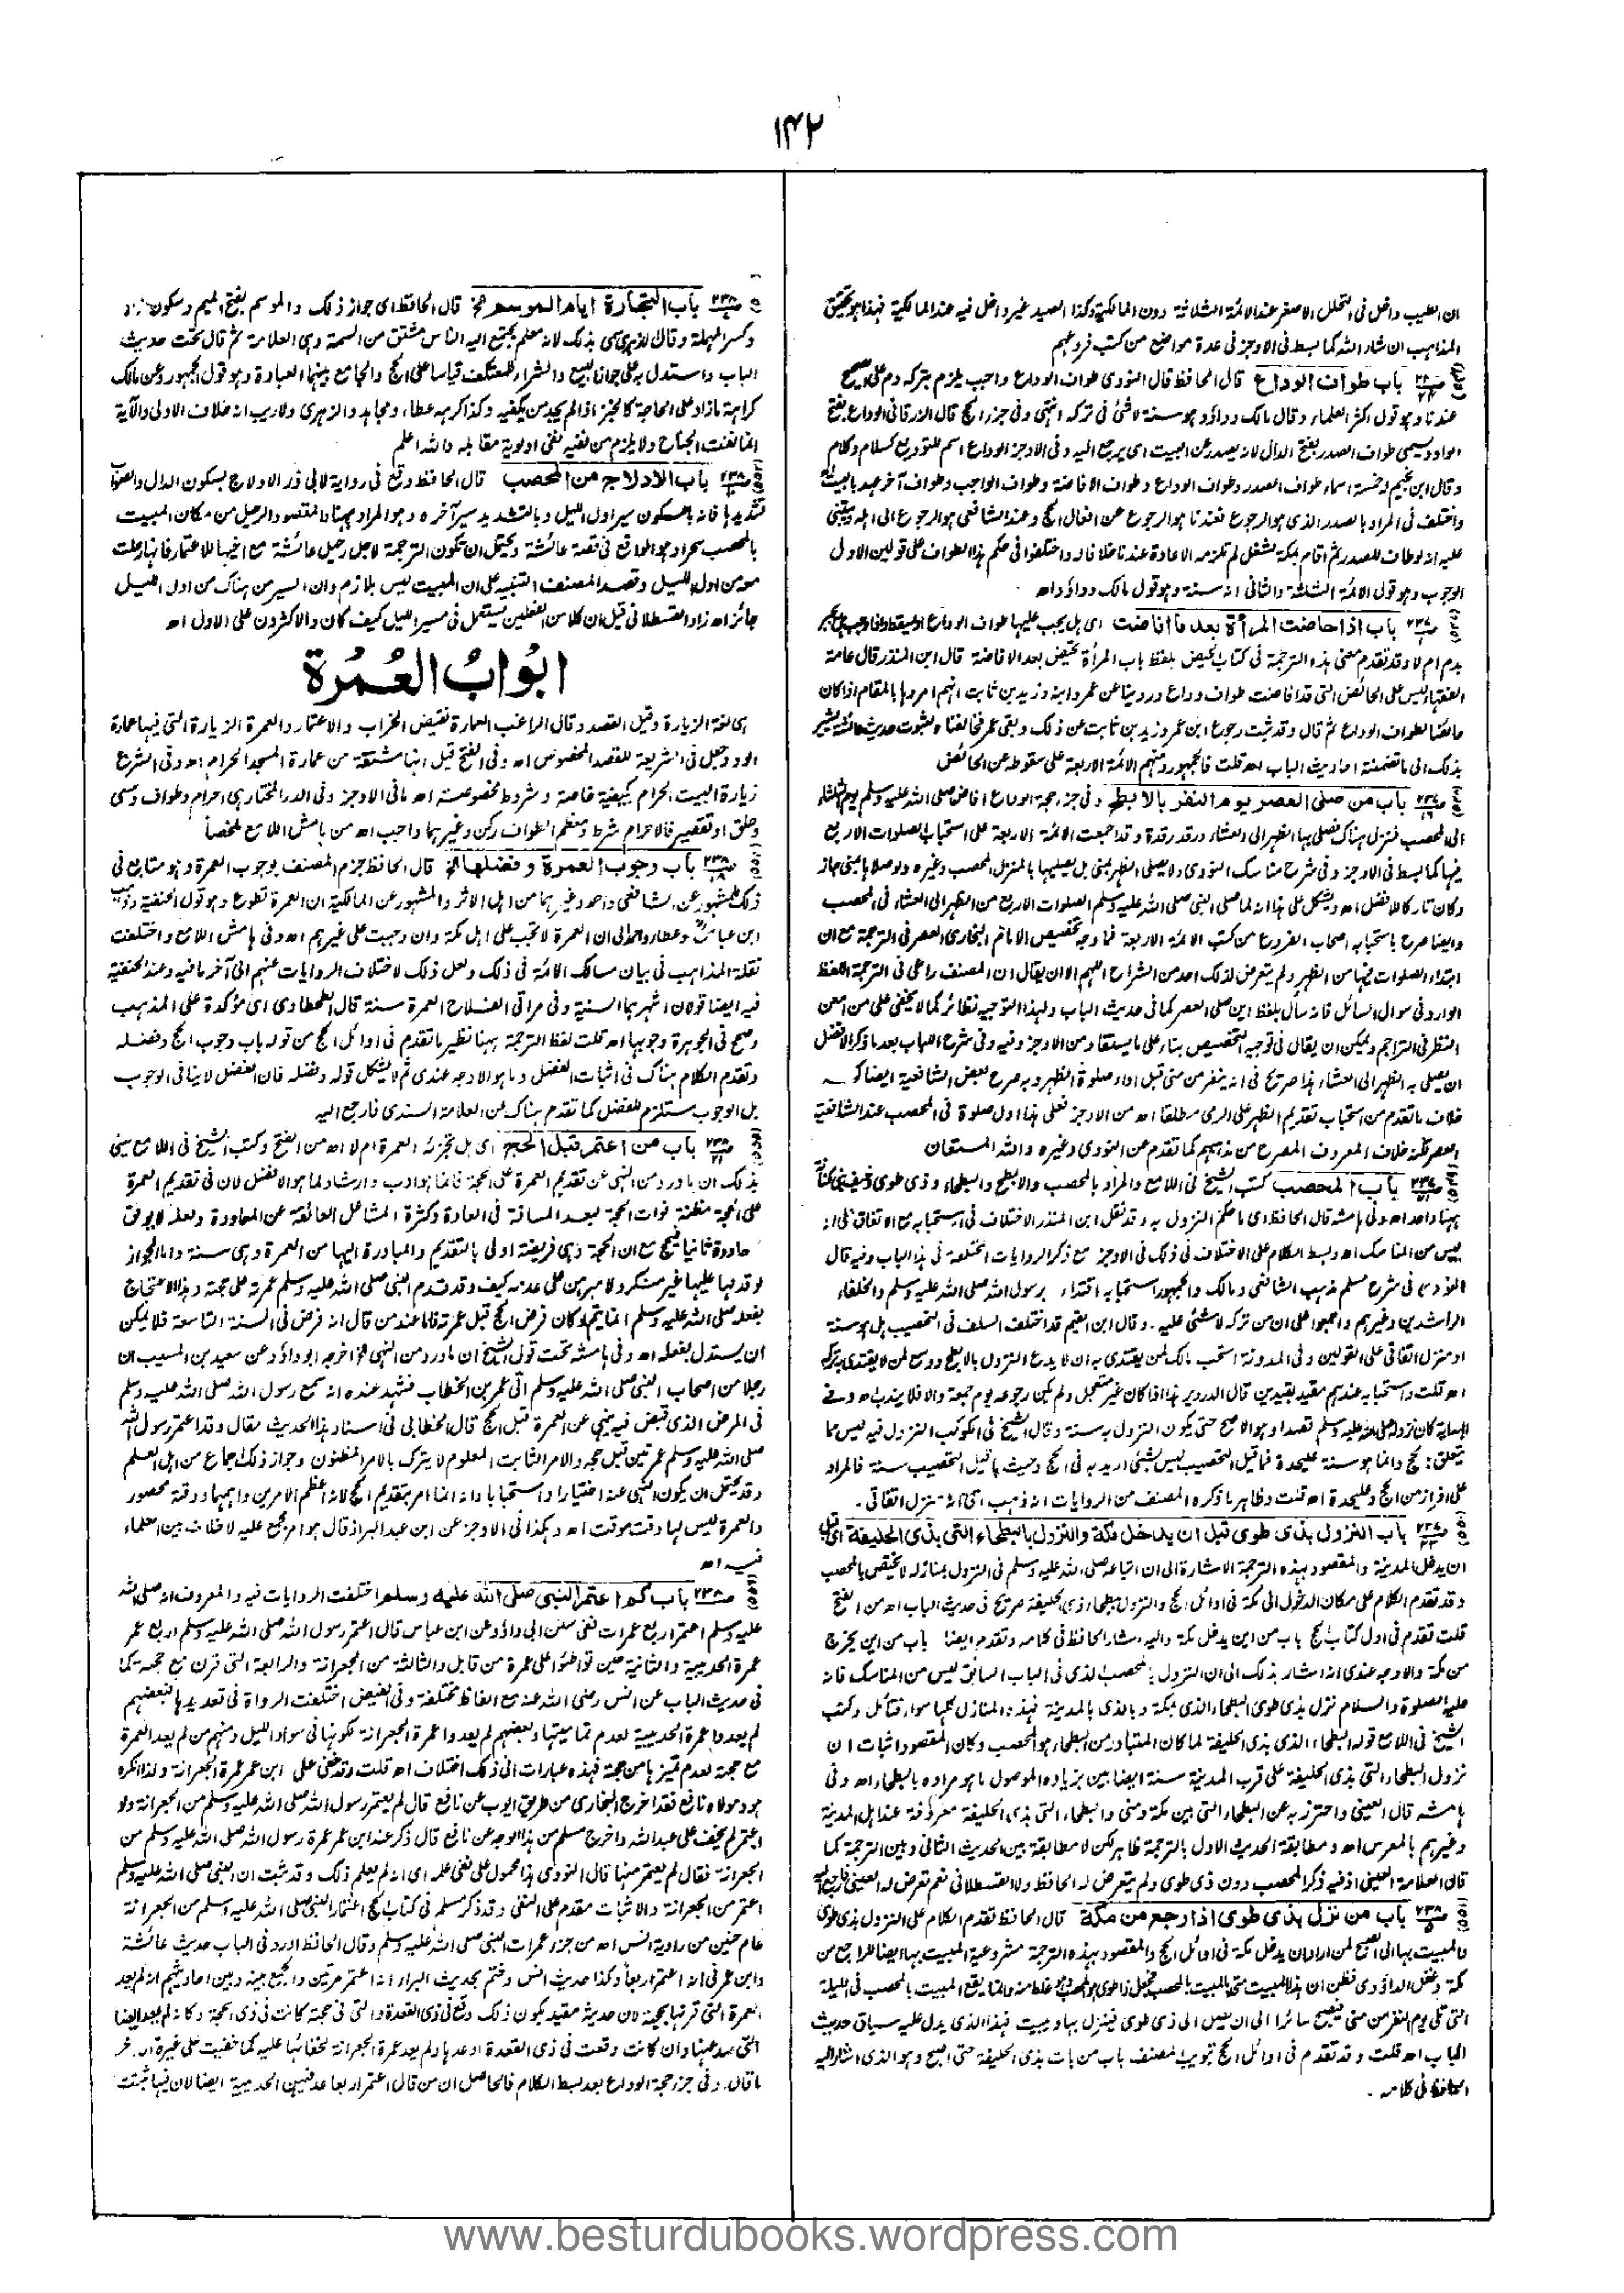 ۱۴۲
ان الطیب داخل فی التحلل الاصغر عند الائمۃ الثلاثۃ دون المالکیۃ وکذا الصید غیر داخل فیہ عند المالکیۃ فہذا ہو تحقیق
المذاہب ان شاء اللہ کما بسط فی الاوجز فی عدۃ مواضع من کتب فروعہم
باب طواف الوداع قال الحافظ قال النووی طواف الوداع واجب یلزم بترکہ دم علی الصحیح
عندنا وہو قول اکثر العلماء وقال مالک وداؤد ہو سنۃ لا شئ فی ترکہ انتہی وفی جزء الحج قال الزرقانی الوداع بفتح
الواو ویسمی طواف الصدر بفتح الدال لانہ یصدر عن البیت ای یرجع الیہ وفی الاوجز الوداع اسم للتودیع کسلام وکلام
وقال ابن نجیم وخمسۃ اسماء طواف الصدر وطواف الوداع وطواف الافاضۃ وطواف الواجب وطواف آخر عہد بالبیت
واختلف فی المراد بالصدر الذی ہو الرجوع فعندنا ہو الرجوع عن افعال الحج وعند الشافعی ہو الرجوع الی اہلہ ویبتنی
علیہ انہ لو طاف للصدر ثم اقام بمکۃ لشغل لم تلزمہ الاعادۃ عندنا خلافا لہ واختلفوا فی حکم ہذا الطواف علی قولین الاول
الوجوب وہو قول الائمۃ الثلثۃ والثانی انہ سنۃ وہو قول مالک وداؤد اھ
باب اذا حاضت المرأۃ بعد ما افاضت ای ہل یجب علیہا طواف الوداع او یسقط واذا وجب ہل یجبر
بدم ام لا وقد تقدم معنی ہذہ الترجمۃ فی کتاب الحیض بلفظ باب المرأۃ تحیض بعد الافاضۃ قال ابن المنذر قال عامۃ
الفقہاء لیس علی الحائض التی قد افاضت طواف وداع وروینا عن عمر وابنہ وزید بن ثابت انہم امروہا بالمقام اذا کان
حائضا لطواف الوداع ثم قال وقد ثبت رجوع ابن عمر وزید بن ثابت عن ذلک وبقی عمر فخالفناہ لثبوت حدیث عائشۃ یشیر
بذلک الی ما تضمنتہ احادیث الباب اھ قلت فالجمہور ومنہم الائمۃ الاربعۃ علی سقوطہ عن الحائض
باب من صلی العصر یوم النفر بالابطح وفی جزء حجۃ الوداع افاض صلی اللہ علیہ وسلم یوم الثلثاء
الی المحصب فنزل ہناک فصلی بہا الظہر الی العشاء ورقد رقدۃ وقد اجمعت الائمۃ الاربعۃ علی استحباب الصلوات الاربع
فیہا کما بسط فی الاوجز وفی شرح مناسک النووی ولا یصلی الظہر بمنی بل یصلیہا بالمنزل المحصب وغیرہ ولو صلاہا بمنی جاز
وکان تارکا للافضل اھ ویشکل علی ہذا انہ لما صلی النبی صلی اللہ علیہ وسلم الصلوات الاربع من الظہر الی العشاء فی المحصب
وایضا صرح باستحبابہ اصحاب الفروع من کتب الائمۃ الاربعۃ فما وجہ تخصیص الامام البخاری العصر فی الترجمۃ مع ان
ابتداء الصلوات فیہا من الظہر ولم یتعرض لذلک احد من الشراح اللہم الا ان یقال ان المصنف راعی فی الترجمۃ اللفظ
الوارد فی سوال السائل فانہ سأل بلفظ این صلی العصر کما فی حدیث الباب ولہذا التوجیہ نظائر کما لا یخفی علی من امعن
النظر فی التراجم ویمکن ان یقال فی توجیہ التخصیص بناء علی ما یستفاد من الاوجز وفیہ وفی شرع اللباب بعد ما ذکر الافضل
ان یصلی بہ الظہر الی العشاء ہذا صریح فی انہ ینفر من منی قبل اداء صلوۃ الظہر وبہ صرح بعض الشافعیۃ ایضا
خلاف ما تقدم من استحباب تقدیم الظہر علی الرمی مطلقا اھ من الاوجز فعلی ہذا اول صلوۃ فی المحصب عند الشافعیۃ
العصر لکنہ خلاف المعروف المصرح من مذہبہم کما تقدم عن النووی وغیرہ واللہ المستعان
باب المحصب کتب الشیخ فی اللامع والمراد بالمحصب والابطح والبطحاء وذی طوی وخیف بنی کنانۃ
ہہنا واحد اھ وفی ہامشہ قال الحافظ ای ما حکم النزول بہ وقد نقل ابن المنذر الاختلاف فی استحبابہ مع الاتفاق علی انہ
لیس من المناسک اھ وبسط الکلام علی الاختلاف فی ذلک فی الاوجز مع ذکر الروایات المختلفۃ فی ہذا الباب وفیہ قال
النووی فی شرح مسلم مذہب الشافعی ومالک والجمہور استحبابہ اقتداء برسول اللہ صلی اللہ علیہ وسلم والخلفاء
الراشدین وغیرہم واجمعوا علی ان من ترکہ لا شئی علیہ۔ وقال ابن القیم قد اختلف السلف فی التحصیب ہل ہو سنۃ
او منزل اتفاقی علی القولین وفی المدونۃ استحب مالک لمن یقتدی بہ ان لا یدع النزول بالابطح ووسع لمن لا یقتدی بہ ترکہ
اھ قلت واستحبابہ عندہم مقید بقیدین قال الدردیر ہذا اذا کان غیر متعجل ولم یکن رجوعہ یوم جمعۃ والا فلا یندب اھ وفی
الہدایۃ کان نزولہ صلی اللہ علیہ وسلم قصدا وہو الاصح حتی یکون النزول بہ سنۃ وقال الشیخ فی الکوکب النزول فیہ لیس مما
یتعلق بالحج وانما ہو سنۃ علیحدۃ فما قیل التحصیب لیس بشئی ارید بہ فی الحج وحیث ما قیل التحصیب سنۃ فالمراد
علی افراز من الحج وعلیحدۃ اھ قلت وظاہر ما ذکرہ المصنف من الروایات انہ ذہب الی انہ منزل اتفاقی۔
باب النزول بذی طوی قبل ان یدخل مکۃ والنزول بالبطحاء التی بذی الحلیفۃ ای قبل
ان یدخل المدینۃ والمقصود بہذہ الترجمۃ الاشارۃ الی ان اتباعہ صلی اللہ علیہ وسلم فی النزول بمنازلہ لا یختص بالمحصب
وقد تقدم الکلام علی مکان الدخول الی مکۃ فی اوائل الحج والنزول ببطحاء ذی الحلیفۃ صریح فی حدیث الباب اھ من الفتح
قلت تقدم فی اول کتاب الحج باب من این یدخل مکۃ والیہ اشار الحافظ فی کلامہ وتقدم ایضا باب من این یخرج
من مکۃ والاوجہ عندی انہ اشار بذلک الی ان النزول بالمحصب الذی فی الباب السابق لیس من المناسک فانہ
علیہ الصلوۃ والسلام نزل بذی طوی البطحاء الذی بمکۃ وبالذی بالمدینۃ فہذہ المنازل کلہا سواء فتأمل وکتب
الشیخ فی اللامع قولہ البطحاء الذی بذی الحلیفۃ لما کان المتبادر من البطحاء ہو المحصب وکان المقصود اثبات ان
نزول البطحاء التی بذی الحلیفۃ علی قرب المدینۃ سنۃ ایضا بین بزیادہ الموصول ما ہو مرادہ بالبطحاء اھ وفی
ہامشہ قال العینی واحترز بہ عن البطحاء التی بین مکۃ ومنی والبطحاء التی بذی الحلیفۃ معروفۃ عند اہل المدینۃ
وغیرہم بالمعرس اھ ومطابقۃ الحدیث الاول بالترجمۃ ظاہر لکن لا مطابقۃ بین الحدیث الثانی وبین الترجمۃ کما
قال العلامۃ العینی اذ فیہ ذکر المحصب دون ذی طوی ولم یتعرض لہ الحافظ ولا القسطلانی نعم تعرض لہ العینی فارجع الیہ
باب من نزل بذی طوی اذا رجع من مکۃ قال الحافظ تقدم الکلام علی النزول بذی طوی
والمبیت بہا الی الصبح لمن اراد ان یدخل مکۃ فی اوائل الحج والمقصود بہذہ الترجمۃ مشروعیۃ المبیت بہا ایضا للراجع من
مکۃ وغفل الداؤدی فظن ان ہذا المبیت متحد بالمبیت بالمحصب فجعل ذا طوی ہو المحصب وہو غلط منہ وانما یقع المبیت بالمحصب فی اللیلۃ
التی تلی یوم النفر من منی فیصبح سائرا الی ان یصل الی ذی طوی فینزل بہا ویبیت فہذا الذی یدل علیہ سیاق حدیث
الباب اھ قلت وقد تقدم فی اوائل الحج تبویب المصنف باب من بات بذی الحلیفۃ حتی اصبح وہو الذی اشار الیہ
الحافظ فی کلامہ۔
باب التجارۃ ایام الموسم الخ قال الحافظ ای جواز ذلک والموسم بفتح المیم وسکون الواو
وکسر المہملۃ وقال الازہری سمی بذلک لانہ معلم یجتمع الیہ الناس مشتق من السمۃ وہی العلامۃ ثم قال تحت حدیث
الباب واستدل بہ علی جواز البیع والشراء للمعتکف قیاسا علی الحج والجامع بینہما العبادۃ وہو قول الجمہور وعن مالک
کراہۃ ما زاد علی الحاجۃ کالخبز اذا لم یجد من یکفیہ وکذا کرہہ عطاء ومجاہد والزہری ولا ریب انہ خلاف الاولی والآیۃ
انما نفت الجناح ولا یلزم من نفیہ نفی اولویۃ مقابلہ واللہ اعلم
باب الادلاج من المحصب قال الحافظ وقع فی روایۃ لابی ذر الادلاج بسکون الدال والصواب
تشدیدہا فانہ بالسکون سیر اول اللیل وبالتشدید سیر آخرہ وہو المراد ہہنا والمقصود الرحیل من مکان المبیت
بالمحصب سحرا وہو الواقع فی قصۃ عائشۃ ویحتمل ان یکون الترجمۃ لاجل رحیل عائشۃ مع اخیہا للاعتمار فانہا رحلت
معہ من اول اللیل وقصد المصنف التنبیہ علی ان المبیت لیس بلازم وان السیر من ہناک من اول اللیل
جائز اھ زاد القسطلانی قیل ان کلا من الفعلین یستعمل فی مسیر اللیل کیف کان والاکثرون علی الاول اھ
ابوابُ العُمرۃ
ہی لغۃ الزیارۃ وقیل القصد وقال الراغب العمارۃ نقیض الخراب والاعتمار والعمرۃ الزیارۃ التی فیہا عمارۃ
الود وجعل فی الشریعۃ للقصد المخصوص اھ وفی الفتح قیل انہا مشتقۃ من عمارۃ المسجد الحرام اھ وفی الشرع
زیارۃ البیت الحرام بکیفیۃ خاصۃ وشروط مخصوصۃ اھ ما فی الاوجز وفی الدر المختار ہی احرام وطواف وسعی
وحلق او تقصیر فالاحرام شرط ومعظم الطواف رکن وغیرہما واجب اھ من ہامش اللامع ملخصاً
باب وجوب العمرۃ وفضلہا الخ قال الحافظ جزم المصنف بوجوب العمرۃ وہو متابع فی
ذلک للمشہور عن الشافعی واحمد وغیرہما من اہل الاثر والمشہور عن المالکیۃ ان العمرۃ تطوع وہو قول الحنفیۃ وذہب
ابن عباس وعطاء واحمد الی ان العمرۃ لا تجب علی اہل مکۃ وان وجبت علی غیرہم اھ وفی ہامش اللامع واختلفت
نقلۃ المذاہب فی بیان مسالک الائمۃ فی ذلک ولعل ذلک لاختلاف الروایات عنہم الی آخر ما فیہ وعند الحنفیۃ
فیہ ایضا قولان اشہرہما السنیۃ وفی مراقی الفلاح العمرۃ سنۃ قال الطحطاوی ای مؤکدۃ علی المذہب
وصحح فی الجوہرۃ وجوبہا اھ قلت لفظ الترجمۃ ہہنا نظیر ما تقدم فی اوائل الحج من قولہ باب وجوب الحج وفضلہ
وتقدم الکلام ہناک فی اثبات الفضل وما ہو الاوجہ عندی ثم لا یشکل قولہ وفضلہ فان الفضل لا ینافی الوجوب
بل الوجوب مستلزم للفضل کما تقدم ہناک عن العلامۃ السندی فارجع الیہ
باب من اعتمر قبل الحج ای ہل تجزئہ العمرۃ ام لا اھ من الفتح وکتب الشیخ فی اللامع یعنی
بذلک ان ما ورد من النہی عن تقدیم العمرۃ علی الحجۃ فانما ہو ادب وارشاد لما ہو الافضل لان فی تقدیم العمرۃ
علی الحجۃ مظنۃ فوات الحجۃ لبعد المسافۃ فی العادۃ وکثرۃ المشاغل العائقۃ عن المعاودۃ ولعلہ لا یوفق
معاودۃ ثانیا فیحج مع ان الحجۃ وہی فریضۃ اولی بالتقدیم والمبادرۃ الیہا من العمرۃ وہی سنۃ واما الجواز
لو قدمہا علیہا غیر مستنکر ولا مبرہن علی عدمہ کیف وقد قدم النبی صلی اللہ علیہ وسلم عمرتہ علی حجتہ وہذا الاحتجاج
بفعلہ صلی اللہ علیہ وسلم انما یتم لو کان فرض الحج قبل عمرتہ فاما عند من قال انہ فرض فی السنۃ التاسعۃ فلا یمکن
ان یستدل بفعلہ اھ وفی ہامشہ تحت قول الشیخ ان ما ورد من النہی الخ اخرجہ ابو داؤد عن سعید بن المسیب ان
رجلا من اصحاب النبی صلی اللہ علیہ وسلم اتی عمر بن الخطاب فشہد عندہ انہ سمع رسول اللہ صلی اللہ علیہ وسلم
فی المرض الذی قبض فیہ ینہی عن العمرۃ قبل الحج قال الخطابی فی اسناد ہذا الحدیث مقال وقد اعتمر رسول اللہ
صلی اللہ علیہ وسلم عمرتین قبل حجہ والامر الثابت المعلوم لا یترک بالامر المظنون وجواز ذلک اجماع من اہل العلم
وقد یحتمل ان یکون النہی عنہ اختیارا واستحبابا وانہ انما امر بتقدیم الحج لانہ اعظم الامرین واہمہما ووقتہ محصور
والعمرۃ لیس لہا وقت موقت اھ وہکذا فی الاوجز عن ابن عبد البر از قال ہو امر مجمع علیہ لا خلاف بین العلماء
فیہ اھ
باب کم اعتمر النبی صلی اللہ علیہ وسلم اختلفت الروایات فیہ والمعروف انہ صلی اللہ
علیہ وسلم اعتمر اربع عمرات ففی سنن ابی داؤد عن ابن عباس قال اعتمر رسول اللہ صلی اللہ علیہ وسلم اربع عمر
عمرۃ الحدیبیۃ والثانیۃ حین تواطئوا علی عمرۃ من قابل والثالثۃ من الجعرانۃ والرابعۃ التی قرن مع حجتہ کما
فی حدیث الباب عن انس رضی اللہ عنہ مع الفاظ مختلفۃ وفی الفیض اختلفت الرواۃ فی تعدیدہا فبعضہم
لم یعدوا عمرۃ الحدیبیۃ لعدم تمامیتہا وبعضہم لم یعدوا عمرۃ الجعرانۃ لکونہا فی سواد اللیل ومنہم من لم یعد العمرۃ
مع حجتہ لعدم تمیزہا من حجتہ فہذہ عبارات الی ذلک اختلاف اھ قلت وقد خفی علی ابن عمر عمرۃ الجعرانۃ ولذا انکرہ
ہو ومولاہ نافع فقد اخرج البخاری من طریق ایوب عن نافع قال لم یعتمر رسول اللہ صلی اللہ علیہ وسلم من الجعرانۃ ولو
اعتمر لم یخف علی عبد اللہ واخرج مسلم من ہذا الوجہ عن نافع قال ذکر عند ابن عمر عمرۃ رسول اللہ صلی اللہ علیہ وسلم من
الجعرانۃ فقال لم یعتمر منہا قال النووی ہذا محمول علی نفی علمہ ای انہ لم یعلم ذلک وقد ثبت ان النبی صلی اللہ علیہ وسلم
اعتمر من الجعرانۃ والاثبات مقدم علی النفی وقد ذکر مسلم فی کتاب الحج اعتمار النبی صلی اللہ علیہ وسلم من الجعرانۃ
عام حنین من روایۃ انس اھ من جزء عمرات النبی صلی اللہ علیہ وسلم وقال الحافظ اورد فی الباب حدیث عائشۃ
وابن عمر فی انہ اعتمر اربعا وکذا حدیث انس وختم بحدیث البراء انہ اعتمر مرتین والجمع بینہ وبین احادیثہم انہ لم یعد
العمرۃ التی قرنہا بحجتہ لان حدیثہ مقید بکون ذلک وقع فی ذی القعدۃ والتی فی حجتہ کانت فی ذی الحجۃ وکانہ لم یعد ایضا
التی صد عنہا وان کانت وقعت فی ذی القعدۃ او عدہا ولم یعد عمرۃ الجعرانۃ لخفائہا علیہ کما خفیت علی غیرہ الی آخر
ما قال۔ وفی جزء حجۃ الوداع بعد بسط الکلام فالحاصل ان من قال اعتمر اربعا عد فیہن الحدیبیۃ ایضا لان فیہا ثبتت
www.besturdubooks.wordpress.com